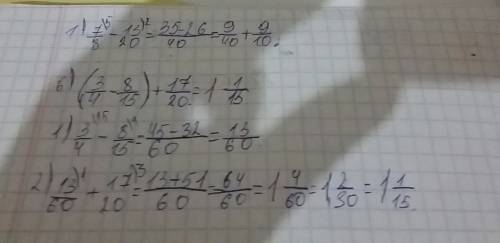 1) 7/8 \5 - 13/20 \2 = 35-26/40 = 9/40 + 9/10.
б) (3/4 - 8/15) + 17/20 = 1 1/15
1) 3/4 \15 - 8/15 \4 = 45-32/60 = 13/60
2) 13/60 \1 + 17/20 \3 = 13+51/60 = 64/60 = 1 4/60 = 1 2/30 = 1 1/15.